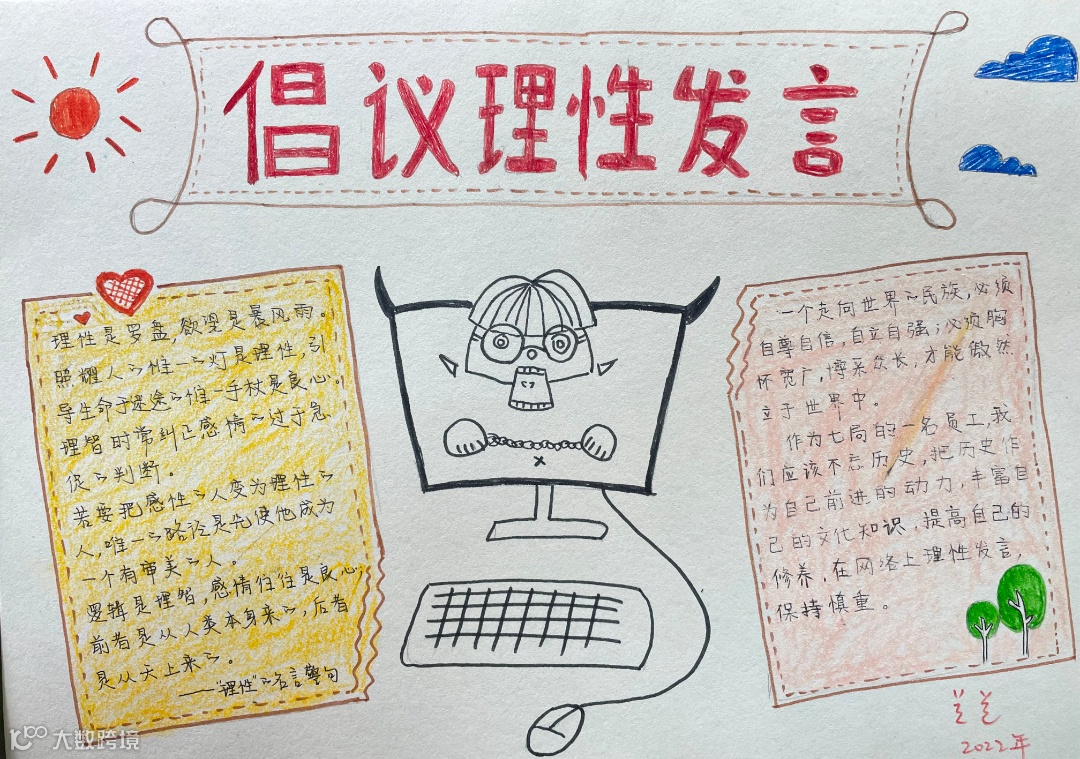 倡议理性发言
理性是罗盘,欲望是暴风雨。
照耀人的惟一的灯是理性,引
导生命于迷途的惟一手杖是良心。
理智时常纠正感情的过于急
促的判断。
若要把感性的人变为理性的
人,唯一的路径是先使他成为
一个有审美的人。
逻辑是理智,感情往往是良心,
前者是从人类本身来的,后者
是从天上来的。
——“理性”的名言警句
一个走向世界的民族,必须
自尊自信,自立自强;必须胸
怀宽广,博采众长,才能傲然
立于世界中。
作为七局的一名员工,我
们应该不忘历史,把历史作
为自己前进的动力,丰富自
己的文化知识,提高自己的
修养,在网络上理性发言,
保持慎重。
兰兰
2022年
大数跨境